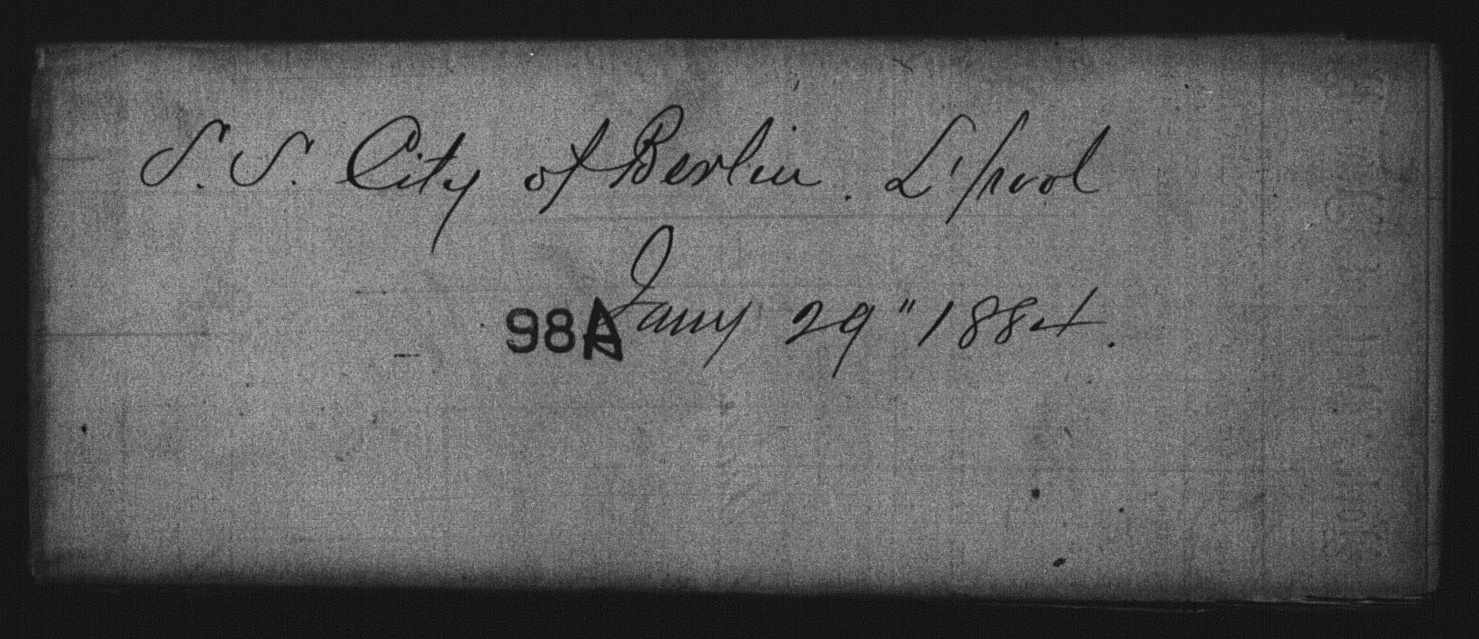 S.S. City of Berlin. L'pool
Jany 29" 1884.
98A